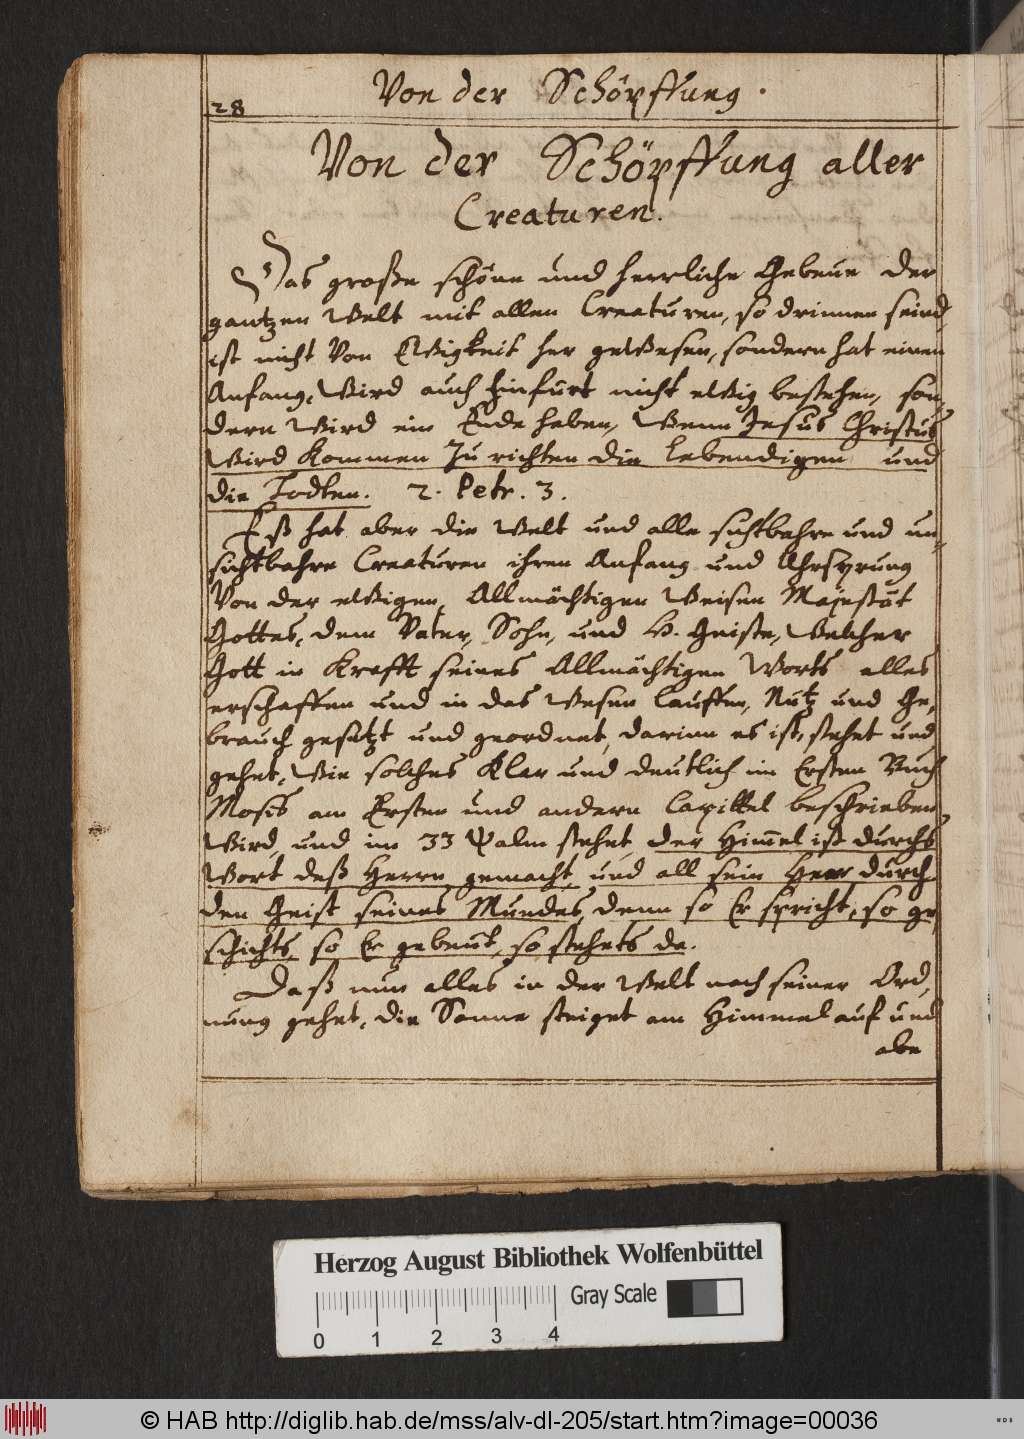 28
Von der Schöpffung.
Von der Schöpffung aller
Creaturen.
Das große schöne und herrliche Gebeue der
gantzen Welt mit allen Creaturen, so drinnen seind,
ist nicht Von Ewigkeit her gewesen, sondern hat einen
Anfang, Wird auch hinfürt nicht ewig bestehen, son,
dern Wird ein Ende haben, Wenn Jesus Christus
Wird Kommen Zu richten die Lebendigen und
die Todten. 2. Petr. 3.
Eß hat aber die Welt und alle sichtbahre und un-
sichtbahre Creaturen ihren Anfang und Uhrsprung
Von der ewigen, Allmächtigen Weisen Majestät
Gottes, dem Vater, Sohn, und H. Geiste, Welcher
Gott in Krafft seines Allmächtigen Worts alles
erschaffen und in das Wesen Lauffen, Nutz und Ge,
brauch gesetzt und geordnet, darinn es ist, stehet und
gehet, Wie solches Klar und deutlich im Ersten Buch
Mosis am Ersten und andern Capittel beschrieben
Wird, und im 33 Psalm stehet, der Himmel ist durchs
Wort deß Herrn gemacht, und all sein Heer durch
den Geist seines Mundes, denn so Er spricht, so ge
schichts, so Er gebeut, so stehets da.
Daß nun alles in der Welt nach seiner Ord,
nung gehet, die Sonne steiget am Himmel auf und
abe
Herzog August Bibliothek Wolfenbüttel
Gray Scale
0 1 2 3 4
© HAB http://diglib.hab.de/mss/alv-dl-205/start.htm?image=00036